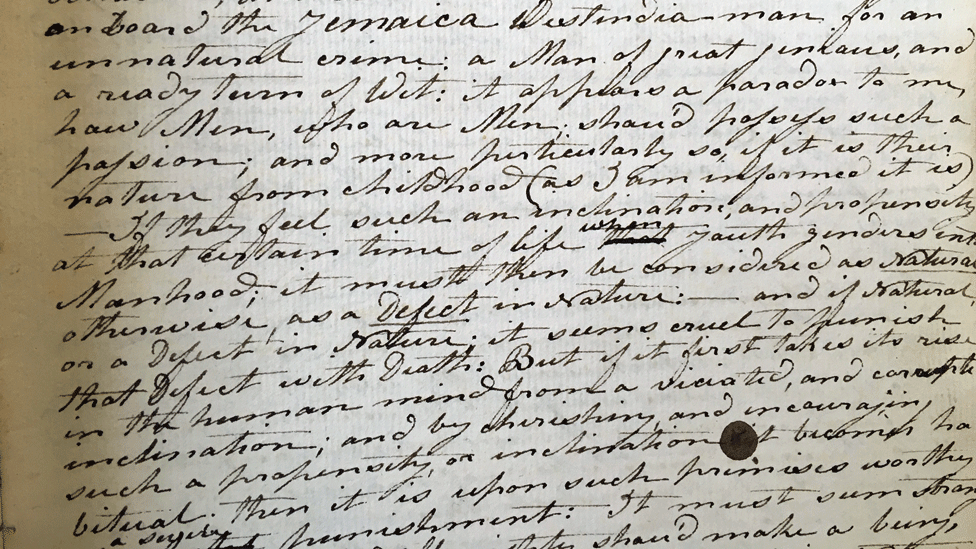 on board the Jemaica Westindia-man for an
unnatural crime: a Man of great genious, and
a ready turn of Wit: it appears a paradox to me,
how Men, who are Men, shou'd possess such a
passion; and more perticularly so, if it is their
nature from childhood (as I am informed it is)
— If they feel such an inclination, and propensity
at that certain time of life when youth genders into
Manhood; it must then be considered as Natural
otherwise, as a Defect in Nature: — and if Natural
or a Defect in Nature; it seems cruel to punish
that Defect with Death: But if it first takes its rise
in the human mind from a viciated, and corrupted
inclination; and by cherishing and incouraging
such a propensity, or inclination it becomes ha
bitual: then it is upon such premises worthy
a severe punishment: It must seem strange
shou'd make a being,